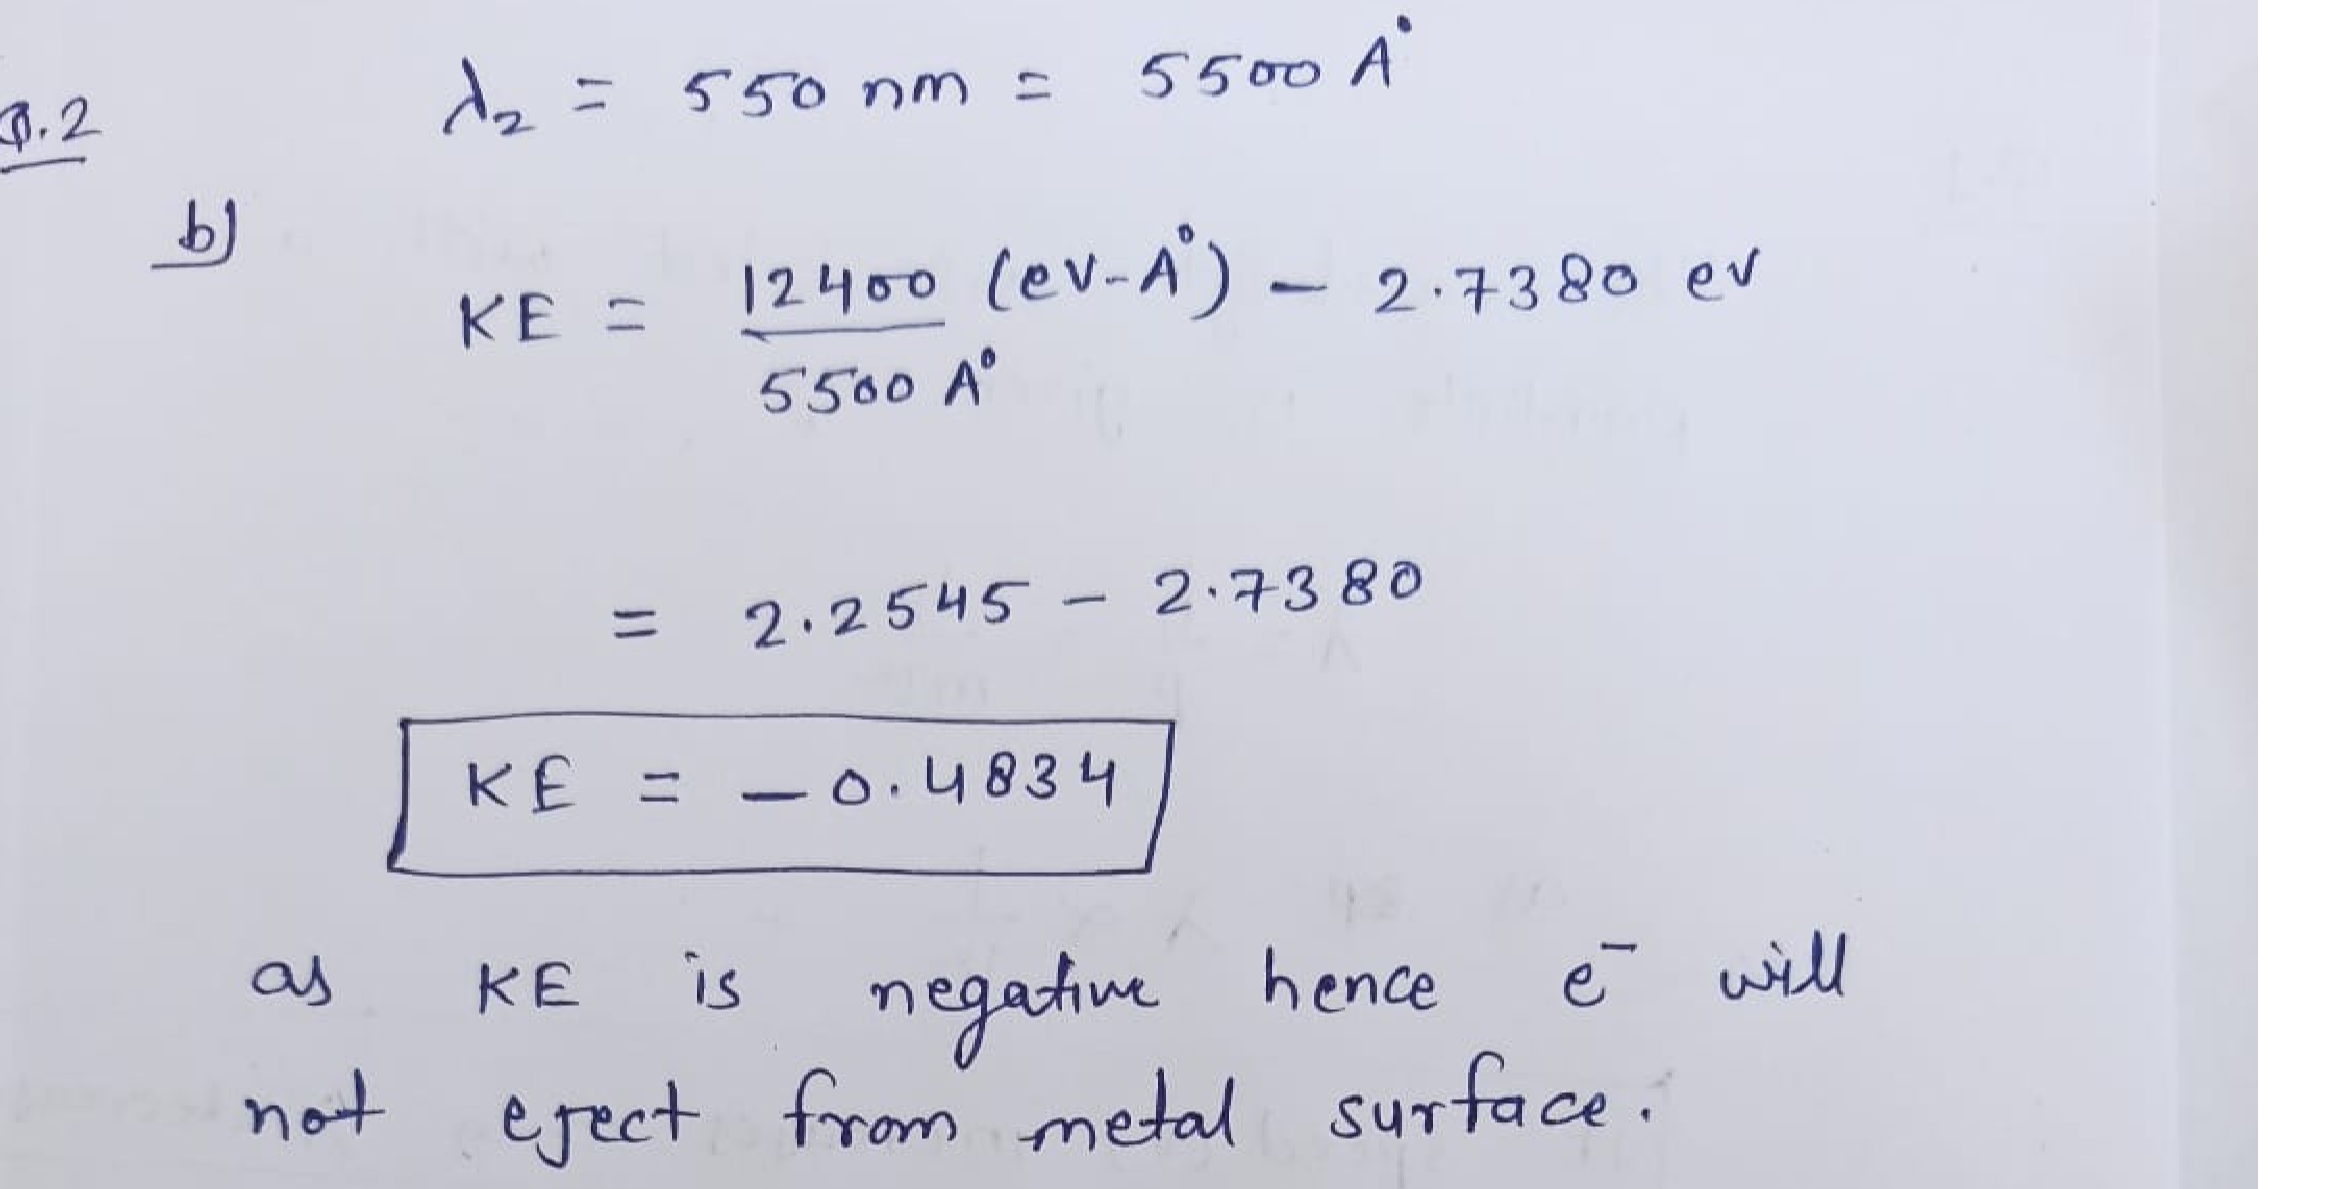 Q.2
λ₂ = 550 nm = 5500 A°
b)
KE = 12400 (ev-A°) / 5500 A° - 2.7380 ev
= 2.2545 - 2.7380
KE = - 0.4834
as KE is negative hence e⁻ will
not eject from metal surface.